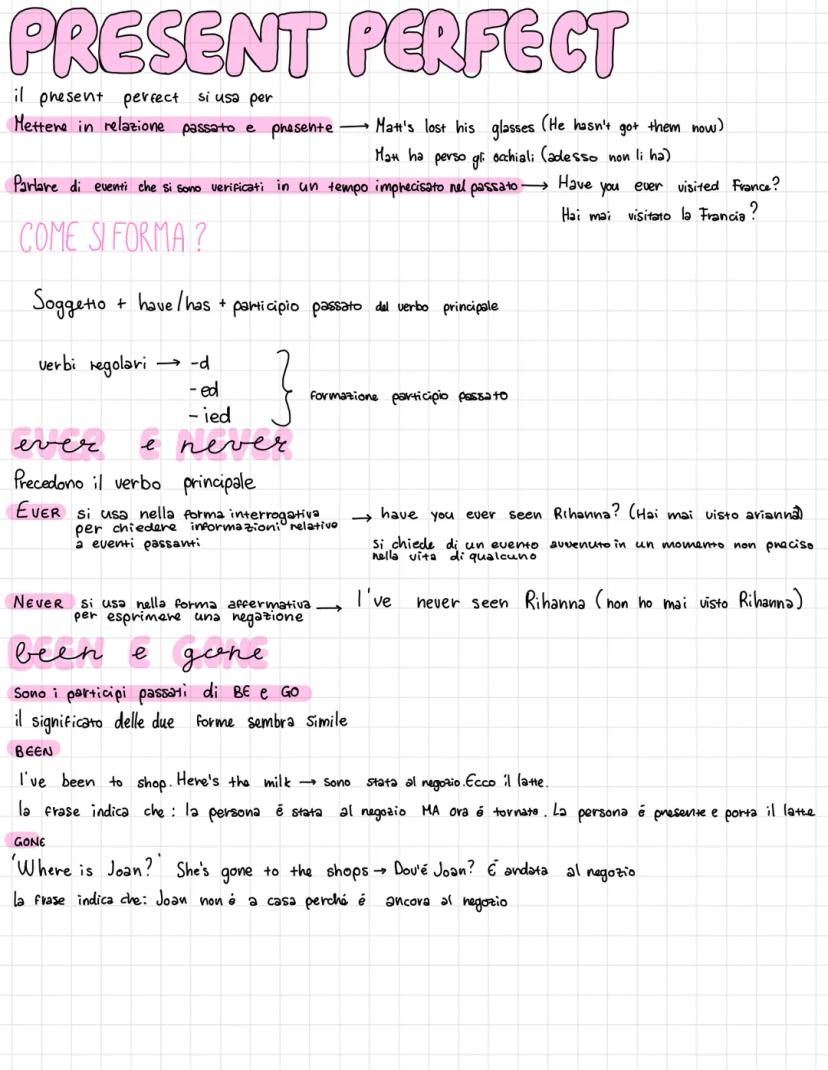 PRESENT PERFECT
il present perfect si usa per
Mettere in relazione passato e presente → Matt's lost his glasses (He hasn't got them now)
Matt ha perso gli occhiali (adesso non li ha)
Parlare di eventi che si sono verificati in un tempo imprecisato nel passato → Have you ever visited France?
Hai mai visitato la Francia?
COME SI FORMA?
Soggetto + have/has + participio passato del verbo principale
verbi regolari → -d
-ed
-ied
formazione participio passato
ever e never
Precedono il verbo principale
EVER si usa nella forma interrogativa → have you ever seen Rihanna? (Hai mai visto arianna)
per chiedere informazioni relative
a eventi passanti
si chiede di un evento avvenuto in un momento non preciso
nella vita di qualcuno
NEVER si usa nella forma affermativa → I've never seen Rihanna (non ho mai visto Rihanna)
per esprimere una negazione
been e gone
Sono i participi passati di BE e GO
il significato delle due forme sembra simile
BEEN
I've been to shop. Here's the milk → sono stata al negozio. Ecco il latte.
la frase indica che: la persona é stata al negozio MA ora é tornata. La persona é presente e porta il latte
GONE
'Where is Joan?' She's gone to the shops → Dov'é Joan? É andata al negozio
la frase indica che: Joan non é a casa perché é ancora al negozio